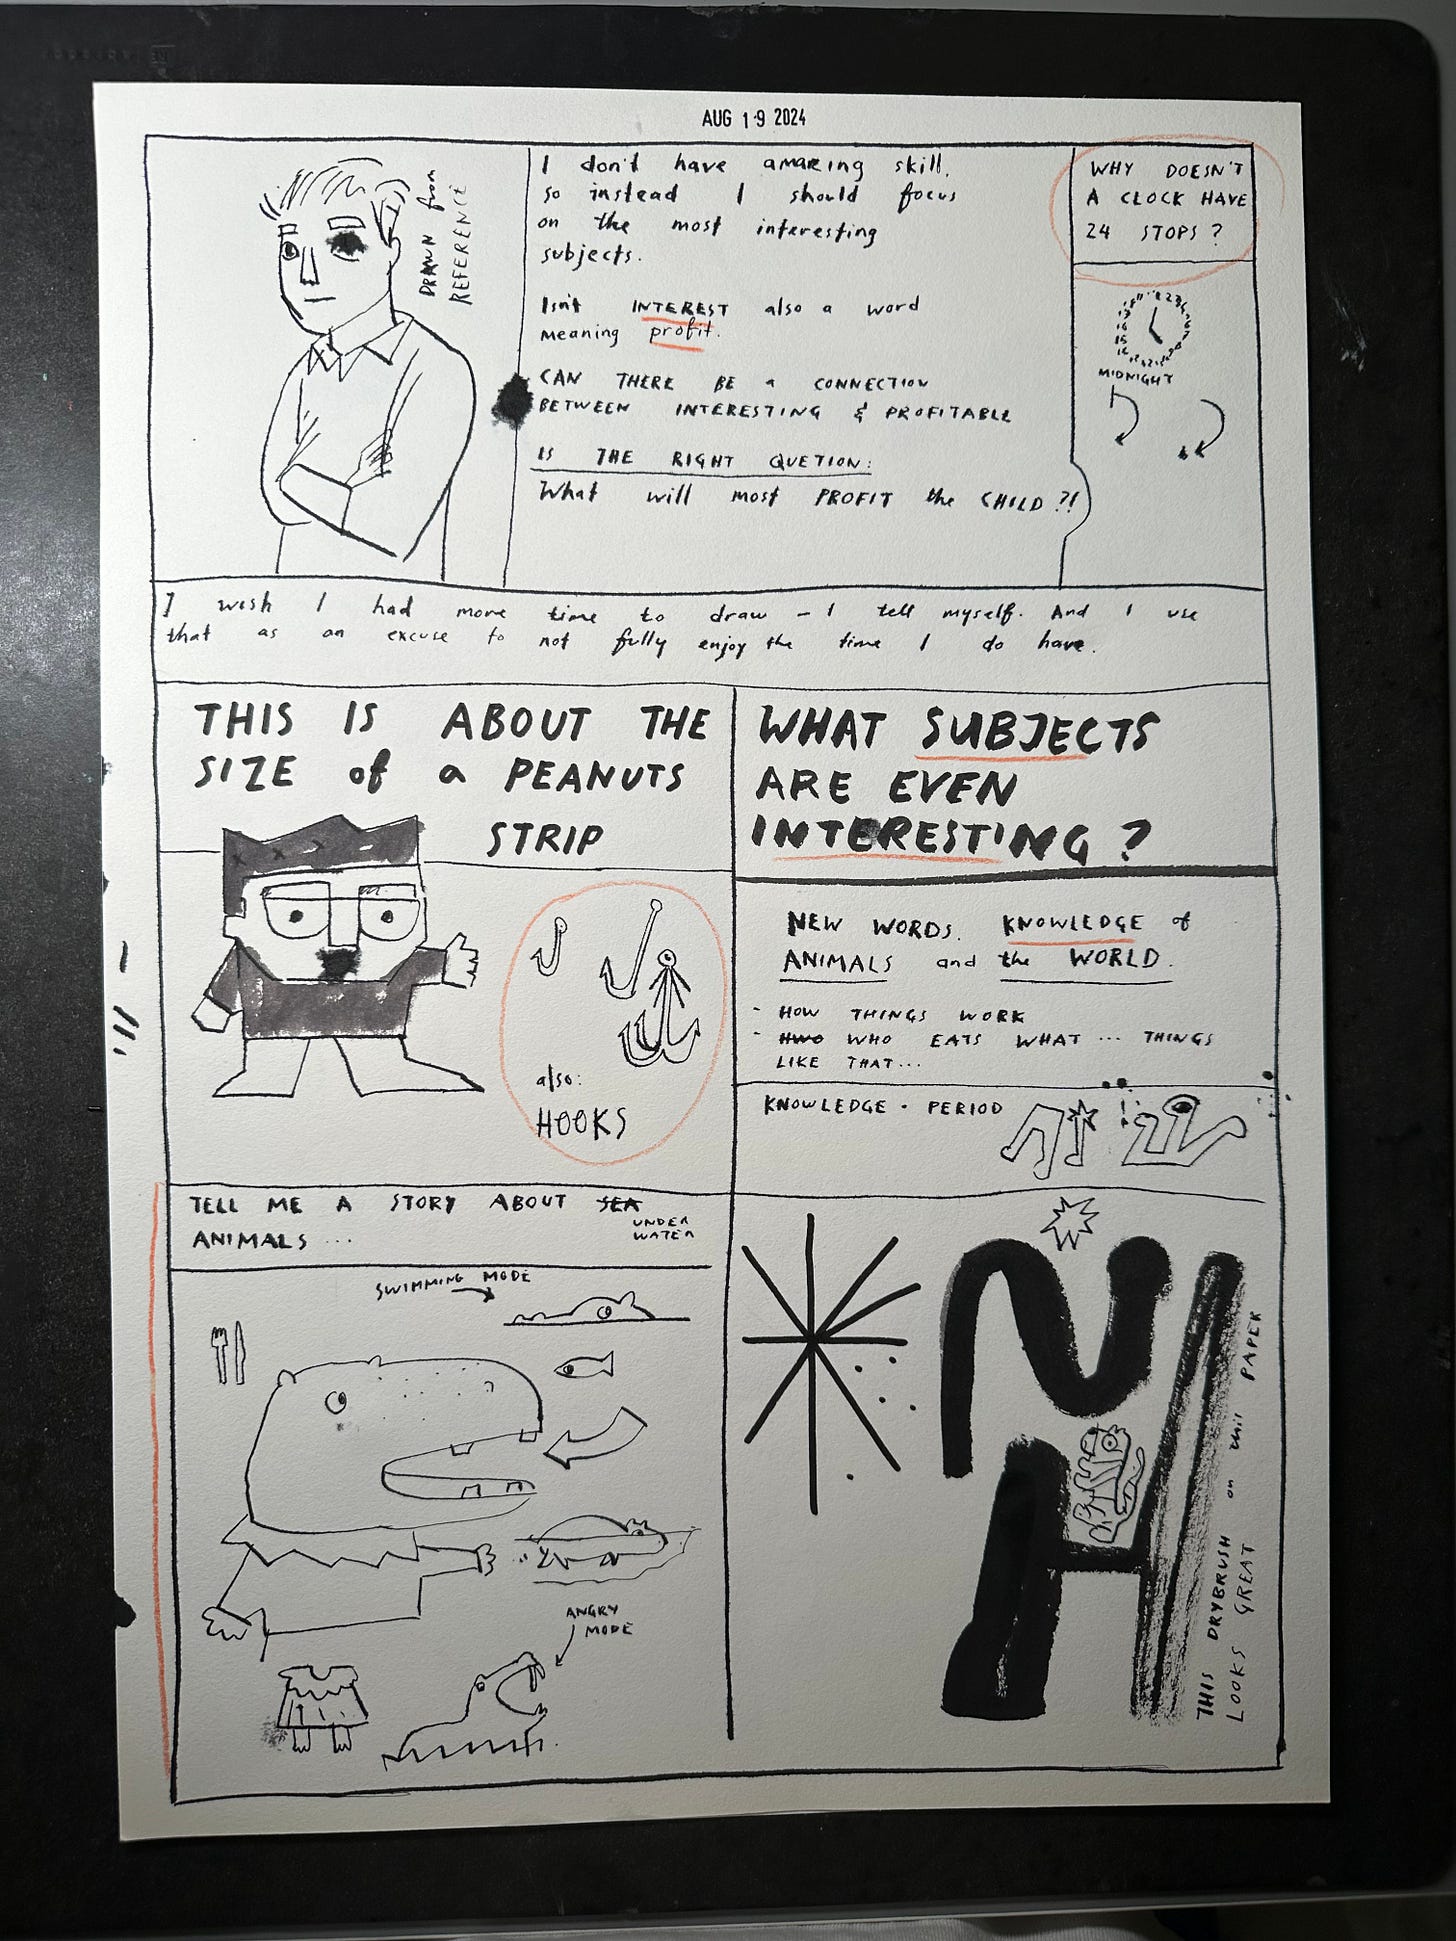 AUG 19 2024
DRAWN from
REFERENCE
I don't have amazing skill.
so instead I should focus
on the most interesting
subjects.
Isn't INTEREST also a word
meaning profit.
CAN THERE BE a CONNECTION
BETWEEN INTERESTING & PROFITABLE
IS THE RIGHT QUETION:
What will most PROFIT the CHILD?!
WHY DOESN'T
A CLOCK HAVE
24 STOPS?
MIDNIGHT
I wish I had more time to draw – I tell myself. And I use
that as an excuse to not fully enjoy the time I do have.
THIS IS ABOUT THE
SIZE of a PEANUTS
STRIP
also:
HOOKS
WHAT SUBJECTS
ARE EVEN
INTERESTING?
NEW WORDS. KNOWLEDGE of
ANIMALS and the WORLD.
- HOW THINGS WORK
- HWO WHO EATS WHAT ... THINGS
LIKE THAT...
KNOWLEDGE · PERIOD
TELL ME A STORY ABOUT SEA
UNDER
WATER
ANIMALS ...
SWIMMING MODE
ANGRY
MODE
THIS DRYBRUSH on this PAPER
LOOKS GREAT